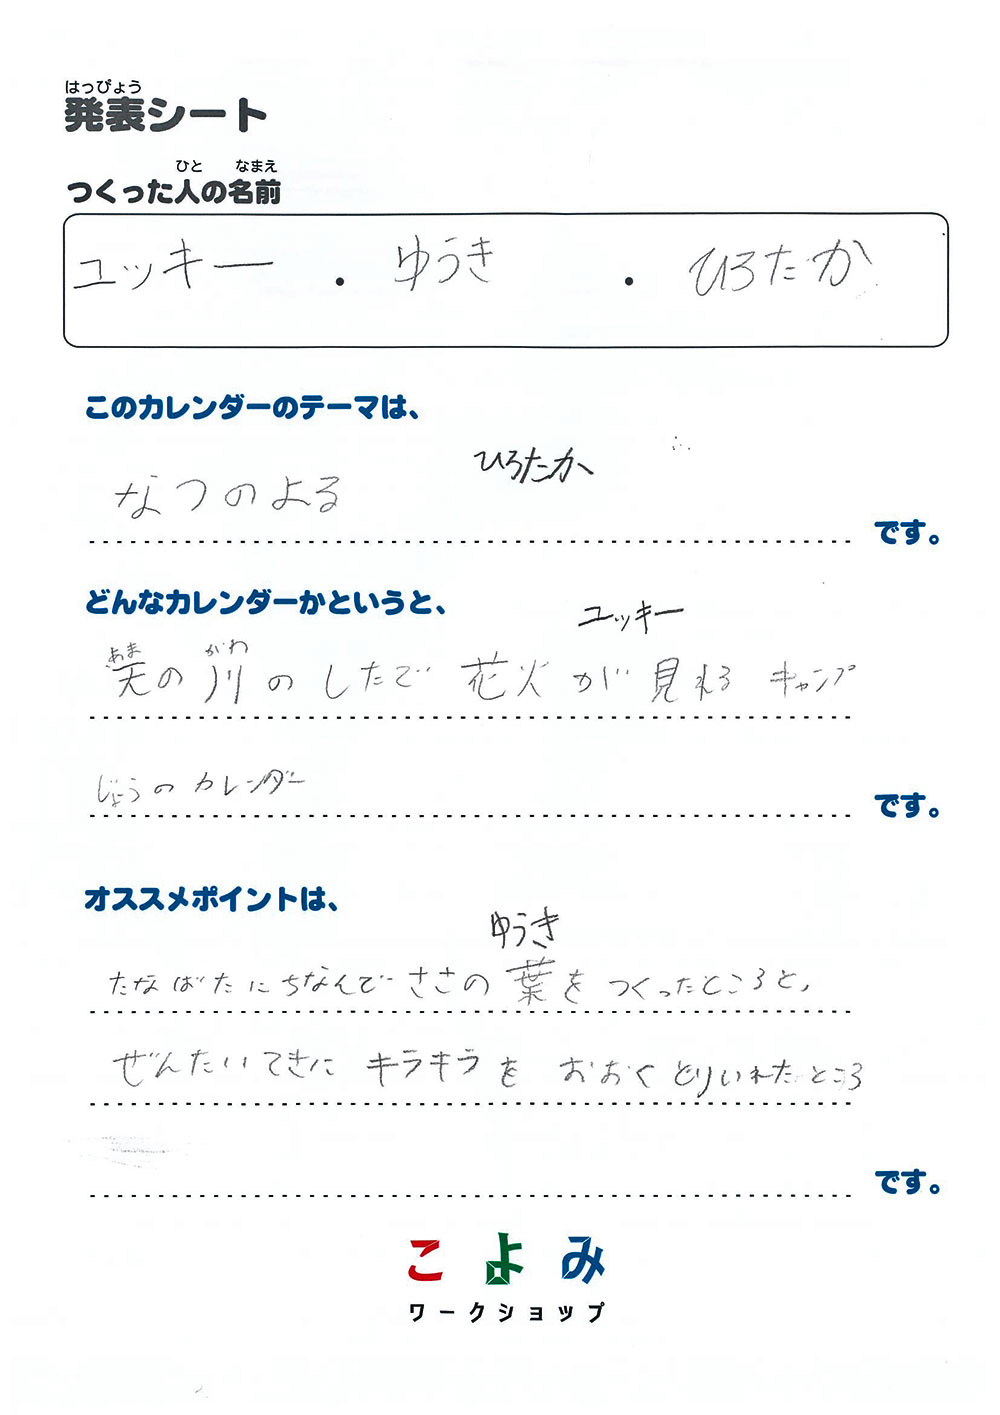 はっぴょう
発表シート
ひと なまえ
つくった人の名前
ユッキー ・ ゆうき ・ ひろたか
このカレンダーのテーマは、
ひろたか
なつのよる
です。
どんなカレンダーかというと、
ユッキー
あま がわ
天の川のしたで花火が見れるキャンプ
じょうのカレンダー
です。
オススメポイントは、
ゆうき
たなばたにちなんでささの葉をつくったところと、
ぜんたいてきにキラキラをおおくとりいれたところ
です。
こよみ
ワークショップ